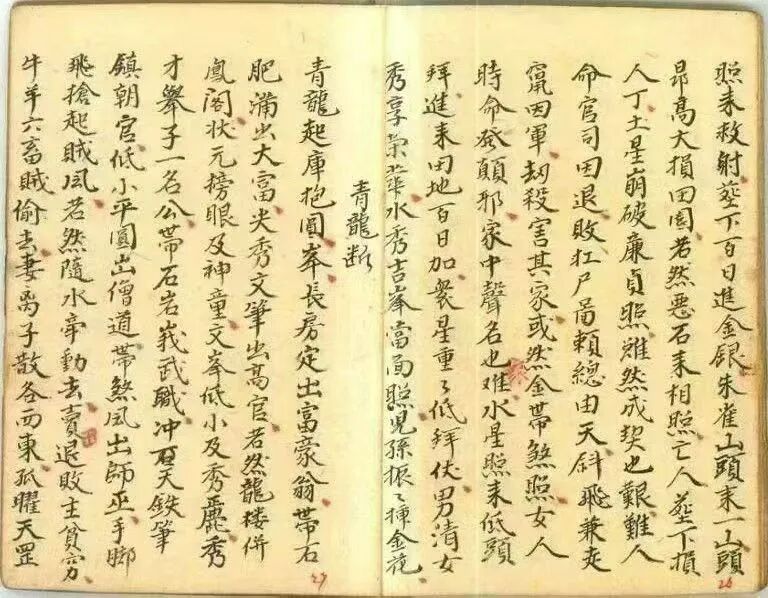 照来救射塟下百日進金銀朱雀山頭来一山頭
昂高大損田園若然惡石来相照亡人塟下損
人丁土星崩破廉貞照雖然成契也艱難人
命官司田退敗扛尸啚賴總由天斜飛兼走
竄因軍刼殺害其家或然金带煞照女人
時命發顛邪家中聲名也难水星照来低頭
拜進来田地百日加衆星重々低拜伏男清女
秀享荣華水秀吉峯當面照児孫振々揷金花
青龍断
青龍起庫抱圓峯長房定出富豪翁带右
肥满出大富尖秀文筆出高官若然龍楼併
鳳阁状元榜眼及神童文峯低小及秀麗秀
才舉子一名公带石岩峩武職冲天鉄筆
鎮朝官低小平圓出僧道带煞風出師巫手脚
飛搶起賊風若然隨水牵動去賣退敗主貧穷
牛羊六畜賊偷去妻离子散各西東孤曜天罡
27
26